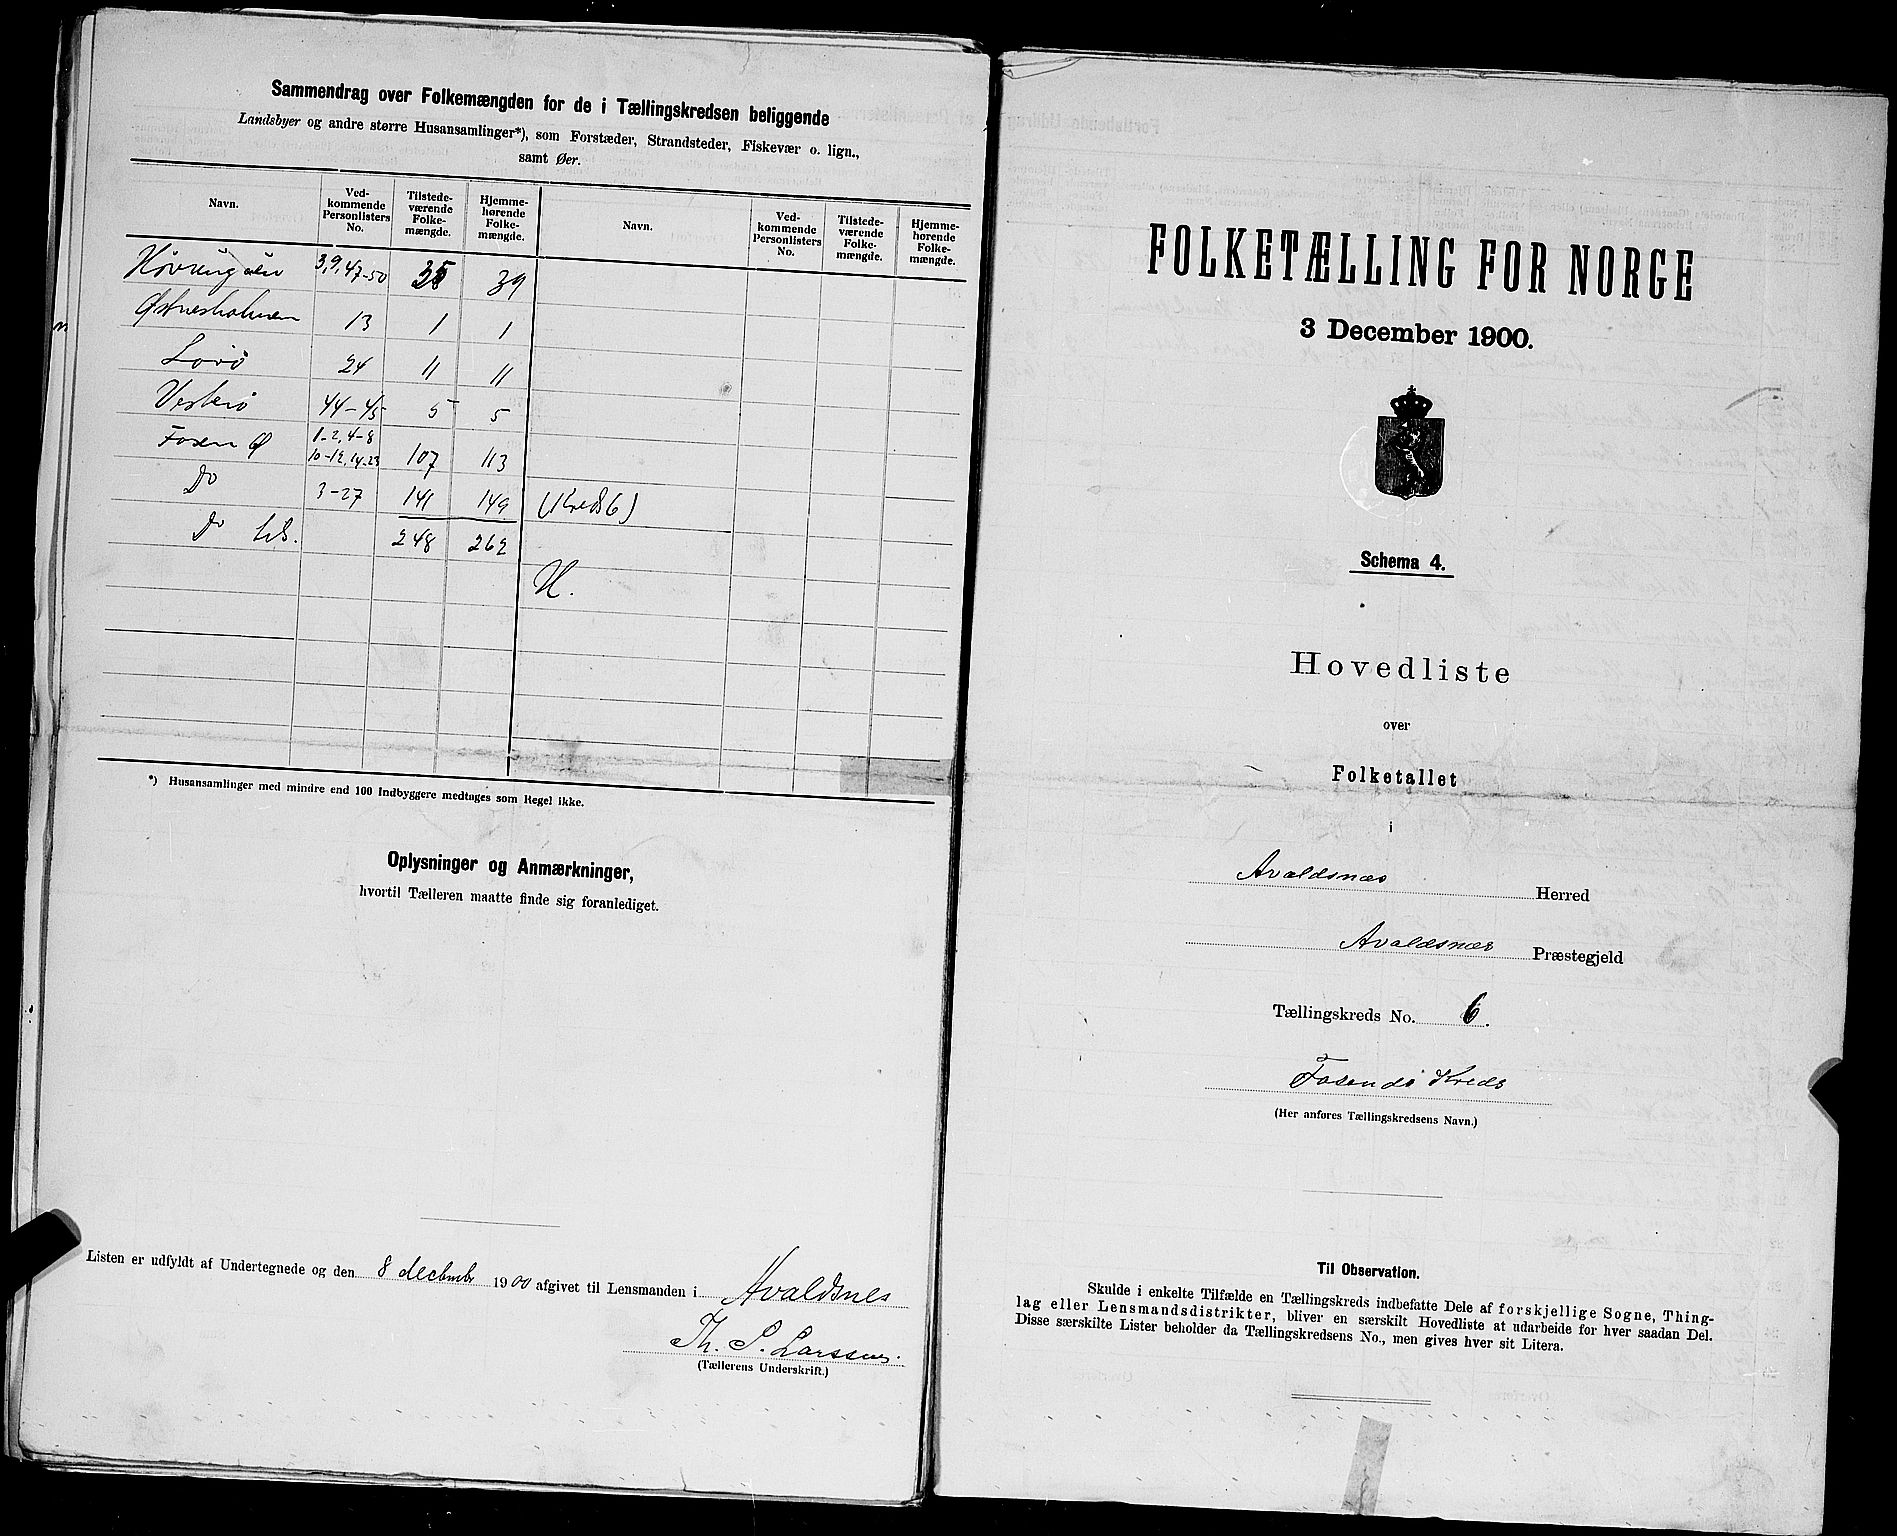 Sammendrag over Folkemængden for de i Tællingskredsen beliggende
Landsbyer og andre større Husansamlinger*), som Forstæder, Strandsteder, Fiskevær o. lign.,
samt Øer.
Navn. Ved-kommende Personlisters No. Tilstede-værende Folke-mængde. Hjemme-hørende Folke-mængde. Navn. Ved-kommende Personlisters No. Tilstede-værende Folke-mængde. Hjemme-hørende Folke-mængde.
3,9,47-50 35 39
13 1 1
Lovø 24 11 11
Vesterø 44-45 5 5
Fosen Ø 1-2,4-8 10-12,14-23 107 113
Do 3-27 141 149 (Kreds 6)
Do 248 262
H.
*) Husansamlinger med mindre end 100 Indbyggere medtages som Regel ikke.
Oplysninger og Anmærkninger,
hvortil Tælleren maatte finde sig foranlediget.
Listen er udfyldt af Undertegnede og den 8 december 1900 afgivet til Lensmanden i Avaldsnes
Th. S. Larssen.
(Tællerens Underskrift.)
FOLKETÆLLING FOR NORGE
3 December 1900.
Schema 4.
Hovedliste
over
Folketallet
i
Avaldsnæs Herred
Avaldsnæs Præstegjeld
Tællingskreds No. 6.
Fosenøs Kreds
(Her anføres Tællingskredsens Navn.)
Til Observation.
Skulde i enkelte Tilfælde en Tællingskreds indbefatte Dele af forskjellige Sogne, Thing-
lag eller Lensmandsdistrikter, bliver en særskilt Hovedliste at udarbeide for hver saadan Del.
Disse særskilte Lister beholder da Tællingskredsens No., men gives hver sit Litera.